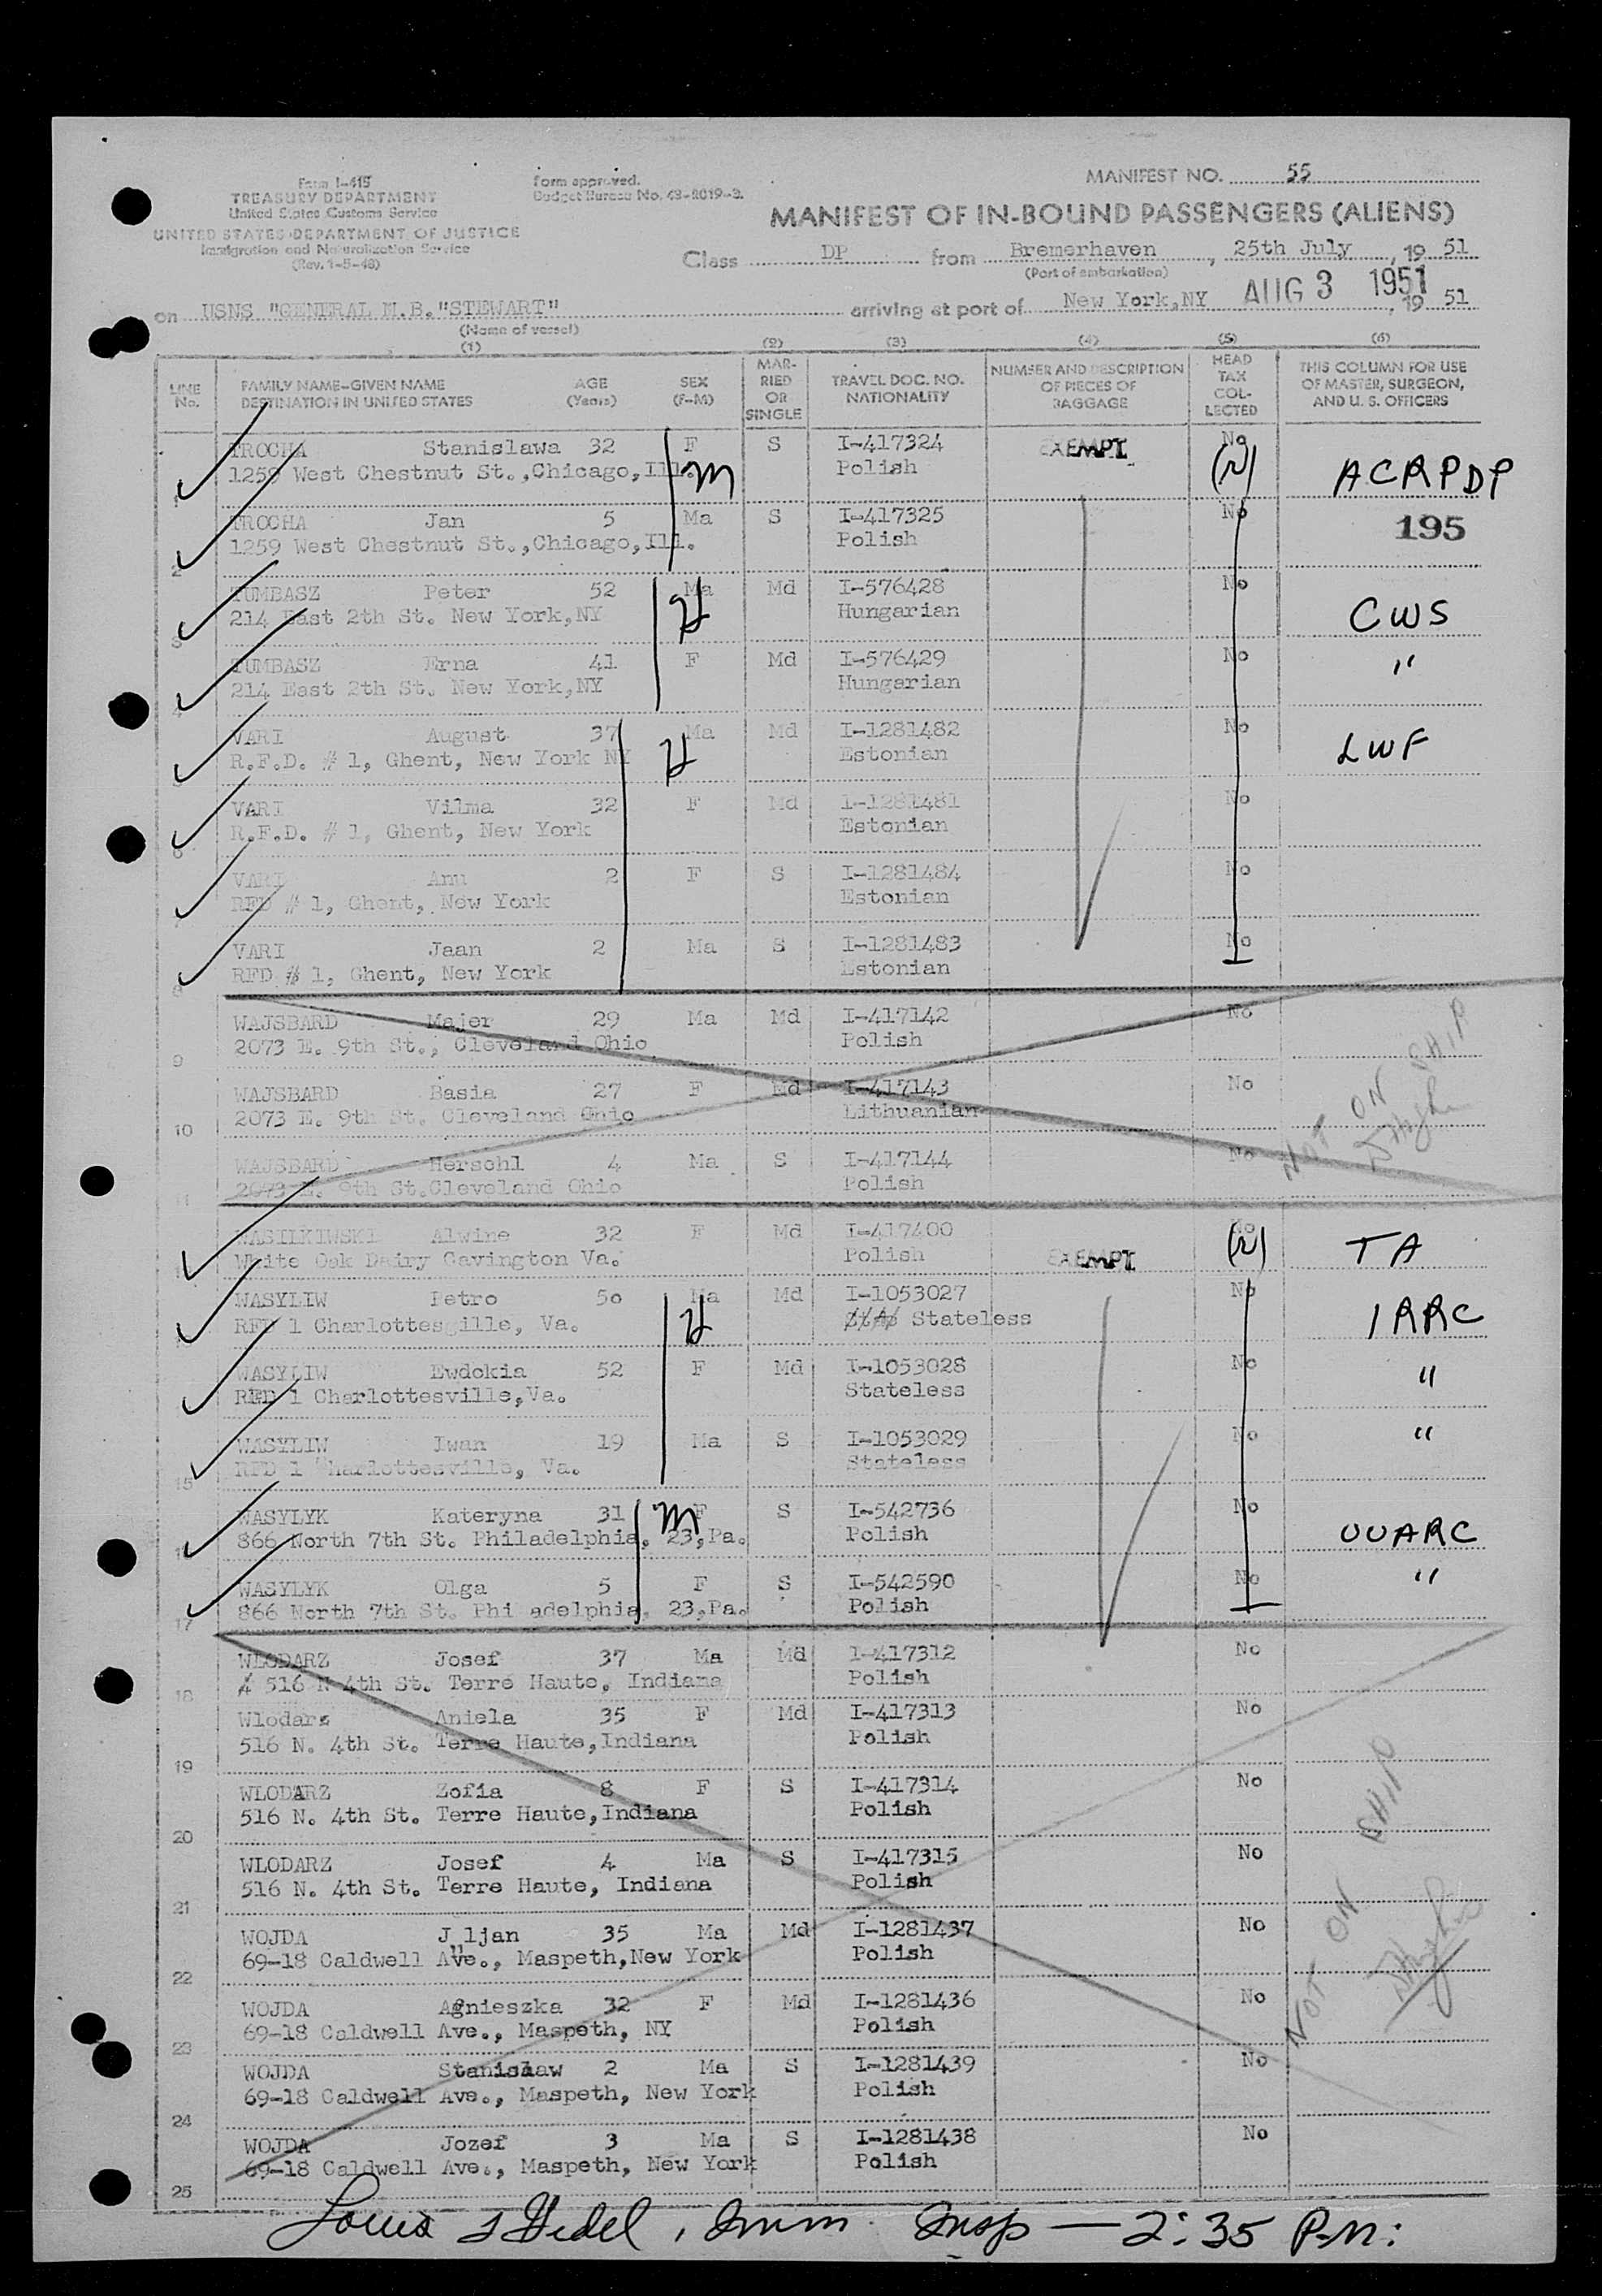 Form I-415
TREASURY DEPARTMENT
United States Customs Service
UNITED STATES DEPARTMENT OF JUSTICE
Immigration and Naturalization Service
(Rev. 1-5-48)
Form approved.
Budget Bureau No. 43-R019-3.
MANIFEST NO. 55
MANIFEST OF IN-BOUND PASSENGERS (ALIENS)
Class DP from Bremerhaven, 25th July, 19 51
(Port of embarkation)
on USNS "GENERAL M.B."STEWART" arriving at port of New York,NY AUG 3 1951, 19 51
(Name of vessel)
(1) (2) (3) (4) (5) (6)
LINE No. FAMILY NAME-GIVEN NAME DESTINATION IN UNITED STATES AGE (Years) SEX (F-M) MARRIED OR SINGLE TRAVEL DOC. NO. NATIONALITY NUMBER AND DESCRIPTION OF PIECES OF BAGGAGE HEAD TAX COLLECTED THIS COLUMN FOR USE OF MASTER, SURGEON, AND U. S. OFFICERS
TROCHA Stanislawa 32 F S I-417324 EXEMPT No
1 1259 West Chestnut St.,Chicago,Ill. m Polish (N) ACRPDP
TROCHA Jan 5 Ma S I-417325 No 195
2 1259 West Chestnut St.,Chicago,Ill. Polish
TUMBASZ Peter 52 Ma Md I-576428 No
3 214 East 2th St. New York,NY H Hungarian CWS
TUMBASZ Erna 41 F Md I-576429 No "
4 214 East 2th St. New York,NY Hungarian
VARI August 37 Ma Md I-1281482 No
5 R.F.D. # 1, Ghent, New York NY H Estonian LWF
VARI Vilma 32 F Md I-1281481 No
6 R.F.D. # 1, Ghent, New York Estonian
VARI Anu 2 F S I-1281484 No
7 RFD # 1, Ghent, New York Estonian
VARI Jaan 2 Ma S I-1281483 No
8 RFD # 1, Ghent, New York Estonian
WAJSBARD Majer 29 Ma Md I-417142 No
9 2073 E. 9th St., Cleveland Ohio Polish
WAJSBARD Basia 27 F Md I-417143 No
10 2073 E. 9th St. Cleveland Ohio Lithuanian
NOT ON SHIP
WAJSBARD Herschl 4 Ma S I-417144 No
11 2073 E. 9th St.Cleveland Ohio Polish
WASILKIWSKI Alwine 32 F Md I-417400 No
White Oak Dairy Cavington Va. Polish EXEMPT (N) TA
WASYLIW Petro 50 Ma Md I-1053027 No
RFD 1 Charlottesgille, Va. H Stateless IRRC
WASYLIW Ewdokia 52 F Md I-1053028 No "
RFD 1 Charlottesville,Va. Stateless
WASYLIW Iwan 19 Ma S I-1053029 No "
15 RFD 1 Charlottesville, Va. Stateless
WASYLYK Kateryna 31 m F S I-542736 No
866 North 7th St. Philadelphia, 23,Pa. Polish UUARC
WASYLYK Olga 5 F S I-542590 No "
17 866 North 7th St. Phi adelphia, 23,Pa. Polish
WLODARZ Josef 37 Ma Md I-417312 No
18 516 N 4th St. Terre Haute, Indiana Polish
Wlodarz Aniela 35 F Md I-417313 No
19 516 N. 4th St. Terre Haute,Indiana Polish
WLODARZ Zofia 8 F S I-417314 No
20 516 N. 4th St. Terre Haute,Indiana Polish
WLODARZ Josef 4 Ma S I-417315 No
21 516 N. 4th St. Terre Haute, Indiana Polish
NOT ON SHIP
WOJDA Juljan 35 Ma Md I-1281437 No
22 69-18 Caldwell Ave., Maspeth,New York Polish
WOJDA Agnieszka 32 F Md I-1281436 No
23 69-18 Caldwell Ave., Maspeth, NY Polish
WOJDA Stanislaw 2 Ma S I-1281439 No
24 69-18 Caldwell Ave., Maspeth, New York Polish
WOJDA Jozef 3 Ma S I-1281438 No
25 69-18 Caldwell Ave., Maspeth, New York Polish
Louis Imm. Insp — 2:35 P.M.